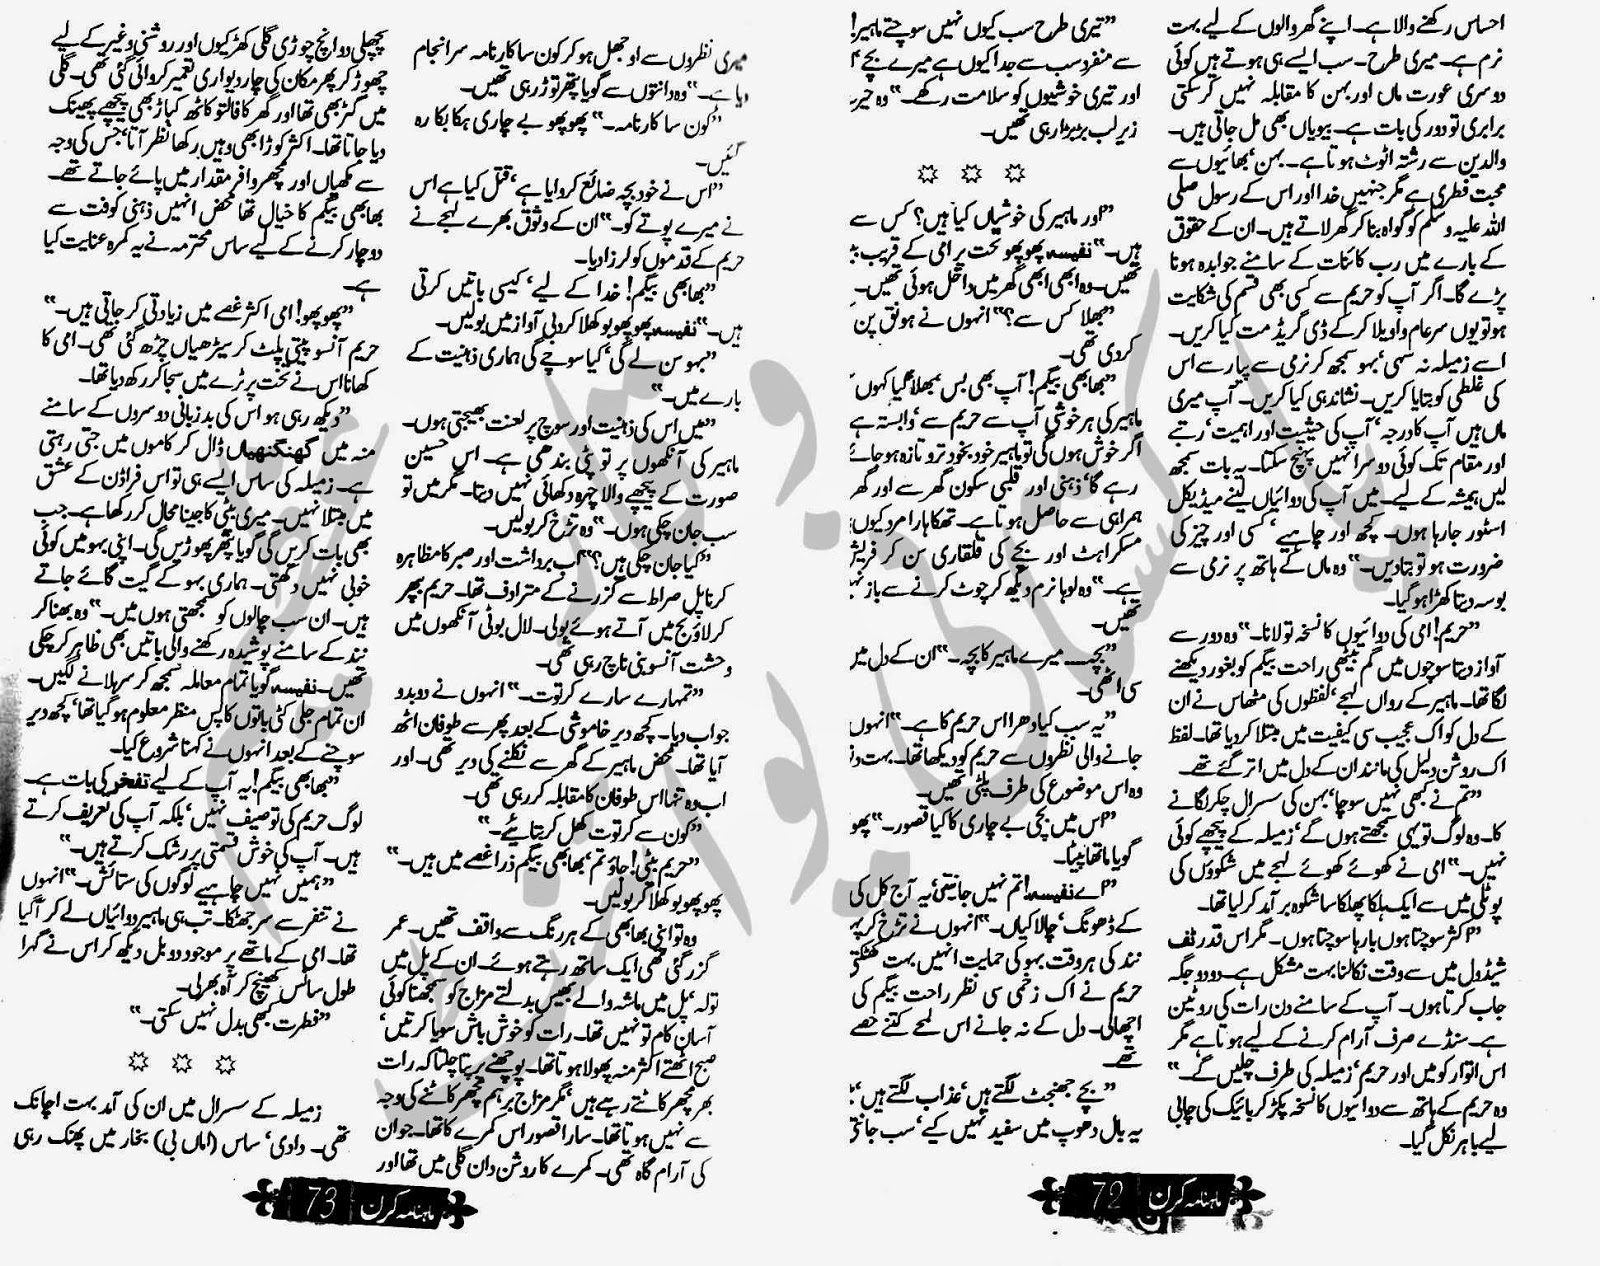 احساس رکھنے والا ہے۔ اپنے گھر والوں کے لیے بہت
نرم ہے۔ میری طرح۔ سب ایسے ہی ہوتے ہیں کوئی
دوسری عورت ماں اور بہن کا مقابلہ نہیں کر سکتی
برابری تو دور کی بات ہے۔ بیویاں بھی مل جاتی ہیں۔
والدین سے رشتہ اٹوٹ ہوتا ہے۔ بہن، بھائیوں سے
محبت فطری ہے مگر جنہیں خدا اور اس کے رسول صلی
اللہ علیہ وسلم کو گواہ بنا کر گھر لاتے ہیں۔ ان کے حقوق
کے بارے میں رب کائنات کے سامنے جوابدہ ہونا
پڑے گا۔ اگر آپ کو حریم سے کسی بھی قسم کی شکایت
ہو تو یوں سرعام واویلا کر کے ڈی گریڈ مت کیا کریں۔
اسے زمیلہ نہ سہی، بہو سمجھ کر نرمی سے پیار سے اس
کی غلطی کو بتایا کریں۔ نشاندہی کیا کریں۔ آپ میری
ماں ہیں آپ کا درجہ، آپ کی حیثیت اور اہمیت، رتبے
اور مقام تک کوئی دوسرا نہیں پہنچ سکتا۔ یہ بات سمجھ
لیں ہمیشہ کے لیے۔ میں آپ کی دوائیاں لینے میڈیکل
اسٹور جا رہا ہوں۔ کچھ اور چاہیے، کسی اور چیز کی
ضرورت ہو تو بتا دیں۔“ وہ ماں کے ہاتھ پر نرمی سے
بوسہ دیتا کھڑا ہو گیا۔
”حریم! امی کی دوائیوں کا نسخہ تو لانا۔“ وہ دور سے
آواز دیتا سوچوں میں گم بیٹھی راحت بیگم کو بغور دیکھنے
لگا تھا۔ ماہیر کے رواں لہجے، لفظوں کی مٹھاس نے ان
کے دل کو اک عجیب سی کیفیت میں مبتلا کر دیا تھا۔ لفظ
اک روشن دلیل کی مانند ان کے دل میں اتر گئے تھے۔
”تم نے کبھی نہیں سوچا، بہن کی سسرال چکر لگانے
کا۔ وہ لوگ تو یہی سمجھتے ہوں گے، زمیلہ کے پیچھے کوئی
نہیں۔“ امی نے کھوئے کھوئے لہجے میں شکوؤں کی
پوٹلی میں سے ایک ہلکا پھلکا سا شکوہ برآمد کر لیا تھا۔
”اکثر سوچتا ہوں بارہا سوچتا ہوں۔ مگر اس قدر ٹف
شیڈول میں سے وقت نکالنا بہت مشکل ہے۔ دو دو جگہ
جاب کرتا ہوں۔ آپ کے سامنے دن رات کی روٹین
ہے۔ سنڈے صرف آرام کرنے کے لیے ہوتا ہے مگر
اس اتوار کو میں اور حریم، زمیلہ کی طرف چلیں گے۔“
وہ حریم کے ہاتھ سے دوائیوں کا نسخہ پکڑ کر بائیک کی چابی
لیے باہر نکل گیا۔
”تیری طرح سب کیوں نہیں سوچتے ماہیر!
سے منفرد سب سے جدا کیوں ہے میرے بچے
اور تیری خوشیوں کو سلامت رکھے۔“ وہ
زیر لب بڑبڑا رہی تھیں۔
”اور ماہیر کی خوشیاں کیا ہیں؟ کس سے
ہیں۔“ نفیسہ پھوپھو تخت پر امی کے قریب
تھیں۔ وہ ابھی ابھی گھر میں داخل ہوئی تھیں۔
”بھلا کس سے؟“ انہوں نے ہونق پن
کر دی تھی۔
”بھابھی بیگم! آپ بھی بس بھلا کیا کہوں
ماہیر کی ہر خوشی آپ سے حریم سے، وابستہ ہے
اگر خوش ہوں گی تو ماہیر خود بخود تروتازہ ہو جائے
رہے گا، ذہنی اور قلبی سکون گھر سے اور گھر
ہمراہی سے حاصل ہوتا ہے۔ تھکا ہارا مرد کیوں
مسکراہٹ اور بچے کی قلقاری سن کر فریش
ہے۔“ وہ لوہا نرم دیکھ کر چوٹ کرنے سے باز
تھیں۔
”بچہ۔۔۔ میرے ماہیر کا بچہ۔“ ان کے دل میں
سی اٹھی۔
”یہ سب کیا دھرا اس حریم کا ہے۔“ انہوں
جانے والی نظروں سے حریم کو دیکھا تھا۔ بہت
وہ اس موضوع کی طرف پلٹی تھیں۔
”اس میں بچی بے چاری کا کیا قصور۔“ پھو
گویا ماتھا پیٹا۔
”اے نفیسہ! تم نہیں جانتی، یہ آج کل کی
کے ڈھونگ، چالاکیاں۔“ انہوں نے تڑخ کر
نند کی ہر وقت بہو کی حمایت انہیں بہت کھٹکتی
حریم نے اک زخمی سی نظر راحت بیگم کی
اچھالی۔ دل کے نہ جانے اس لمحے کتنے حصے
تھے۔
”بچے جھنجٹ لگتے ہیں، عذاب لگتے ہیں،
یہ بال دھوپ میں سفید نہیں کیے، سب جانتی
ماہنامہ کرن 72
میری نظروں سے اوجھل ہو کر کون سا کارنامہ سرانجام
دیا ہے۔“ وہ دانتوں سے گویا پتھر توڑ رہی تھیں۔
”کون سا کارنامہ۔“ پھوپھو بے چاری ہکا بکا رہ
گئیں۔
”اس نے خود بچہ ضائع کروایا ہے، قتل کیا ہے اس
نے میرے پوتے کو۔“ ان کے وثوق بھرے لہجے نے
حریم کے قدموں کو لرزا دیا۔
”بھابھی بیگم! خدا کے لیے، کیسی باتیں کرتی
ہیں۔“ نفیسہ پھوپھو بوکھلا کر دبی آواز میں بولیں۔
”بہو سن لے گی، کیا سوچے گی ہماری ذہنیت کے
بارے میں۔“
”میں اس کی ذہنیت اور سوچ پر لعنت بھیجتی ہوں۔
ماہیر کی آنکھوں پر تو پٹی بندھی ہے۔ اس حسین
صورت کے پیچھے والا چہرہ دکھائی نہیں دیتا۔ مگر میں تو
سب جان چکی ہوں۔“ وہ تڑخ کر بولیں۔
”کیا جان چکی ہیں؟“ اب برداشت اور صبر کا مظاہرہ
کرنا پل صراط سے گزرنے کے مترادف تھا۔ حریم بپھر
کر لاؤنج میں آتے ہوئے بولی۔ لال بوٹی آنکھوں میں
وحشت آنسو بنی ناچ رہی تھی۔
”تمہارے سارے کرتوت۔“ انہوں نے دوبدو
جواب دیا۔ کچھ دیر خاموشی کے بعد پھر سے طوفان اٹھ
آیا تھا۔ محض ماہیر کے گھر سے نکلنے کی دیر تھی۔ اور
اب وہ تنہا اس طوفان کا مقابلہ کر رہی تھی۔
”کون سے کرتوت کھل کر بتائیے۔“
”حریم بیٹی! جاؤ تم، بھابھی بیگم ذرا غصے میں ہیں۔“
پھوپھو بوکھلا کر بولیں۔
وہ تو اپنی بھابھی کے ہر رنگ سے واقف تھیں۔ عمر
گزر گئی تھی ایک ساتھ رہتے ہوئے۔ ان کے پل میں
تولہ، پل میں ماشہ والے بھیس بدلتے مزاج کو سمجھنا کوئی
آسان کام تو نہیں تھا۔ رات کو خوش باش سویا کرتیں،
صبح اٹھتے اکثر منہ پھولا ہوتا تھا۔ پوچھنے پر پتا چلتا کہ رات
بھر مچھر کاٹتے رہے ہیں، مگر مزاج برہم مچھر کاٹنے کی وجہ
سے نہیں ہوتا تھا۔ سارا قصور اس کمرے کا تھا۔ جو ان
کی آرام گاہ تھی۔ کمرے کا روشن دان گلی میں تھا اور
پچھلی دو انچ چوڑی گلی کھڑکیوں اور روشنی وغیر کے لیے
چھوڑ کر پھر مکان کی چار دیواری تعمیر کروائی گئی تھی۔ گلی
میں گٹر بھی تھا اور گھر کا فالتو کاٹھ کباڑ بھی پیچھے پھینک
دیا جاتا تھا۔ اکثر کوڑا بھی وہیں رکھا نظر آتا، جس کی وجہ
سے مکھیاں اور مچھر وافر مقدار میں پائے جاتے تھے۔
بھابھی بیگم کا خیال تھا محض انہیں ذہنی کوفت سے
دوچار کرنے کے لیے ساس محترمہ نے یہ کمرہ عنایت کیا
ہے۔
”پھوپھو! امی اکثر غصے میں زیادتی کر جاتی ہیں۔“
حریم آنسو پیتی پلٹ کر سیڑھیاں چڑھ گئی تھی۔ امی کا
کھانا اس نے تخت پر ٹرے میں سجا کر رکھ دیا تھا۔
”دیکھ رہی ہو اس کی بدزبانی دوسروں کے سامنے
منہ میں گھنگنھیاں ڈال کر کاموں میں جتی رہتی
ہے۔ زمیلہ کی ساس ایسے ہی تو اس فراڈن کے عشق
میں مبتلا نہیں۔ میری بیٹی کا جینا محال کر رکھا ہے۔ جب
بھی بات کریں گی گویا پتھر پھوڑیں گی۔ اپنی بہو میں کوئی
خوبی نہیں دکھتی۔ ہماری بہو کے گیت گائے جاتے
ہیں۔ ان سب چالوں کو سمجھتی ہوں میں۔“ وہ بھنا کر
نند کے سامنے پوشیدہ رکھنے والی باتیں بھی ظاہر کر چکی
تھیں۔ نفیسہ گویا تمام معاملہ سمجھ کر سر ہلانے لگیں۔
ان تمام جلی کٹی باتوں کا پس منظر معلوم ہو گیا تھا، کچھ دیر
سوچنے کے بعد انہوں نے کہنا شروع کیا۔
”بھابھی بیگم! یہ آپ کے لیے تفخر کی بات ہے۔
لوگ حریم کی توصیف نہیں، بلکہ آپ کی تعریف کرتے
ہیں۔ آپ کی خوش قسمتی پر رشک کرتے ہیں۔“
”ہمیں نہیں چاہیے لوگوں کی ستائش۔“ انہوں
نے تنفر سے سر جھٹکا۔ تب ہی ماہیر دوائیاں لے کر آ گیا
تھا۔ امی کے ماتھے پر موجود دو بل دیکھ کر اس نے گہرا
طول سانس کھینچ کر آہ بھرلی۔
”فطرت کبھی بدل نہیں سکتی۔“
زمیلہ کے سسرال میں ان کی آمد بہت اچانک
تھی۔ دادی، ساس (اماں بی) بخار میں پھنک رہی
ماہنامہ کرن 73